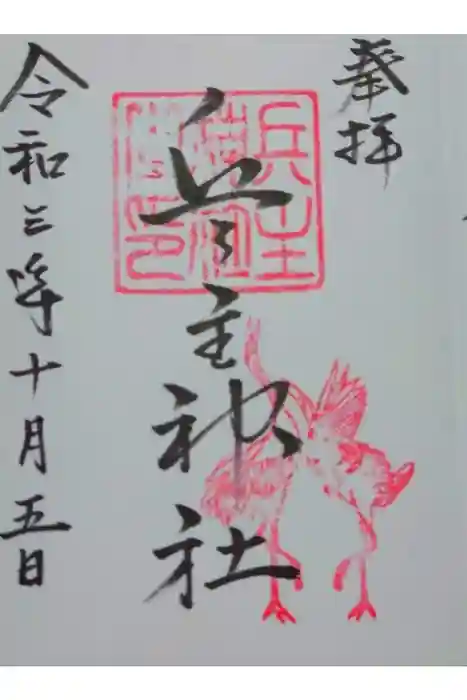 奉拝
兵主神社
兵主
神社
令和三年十月五日